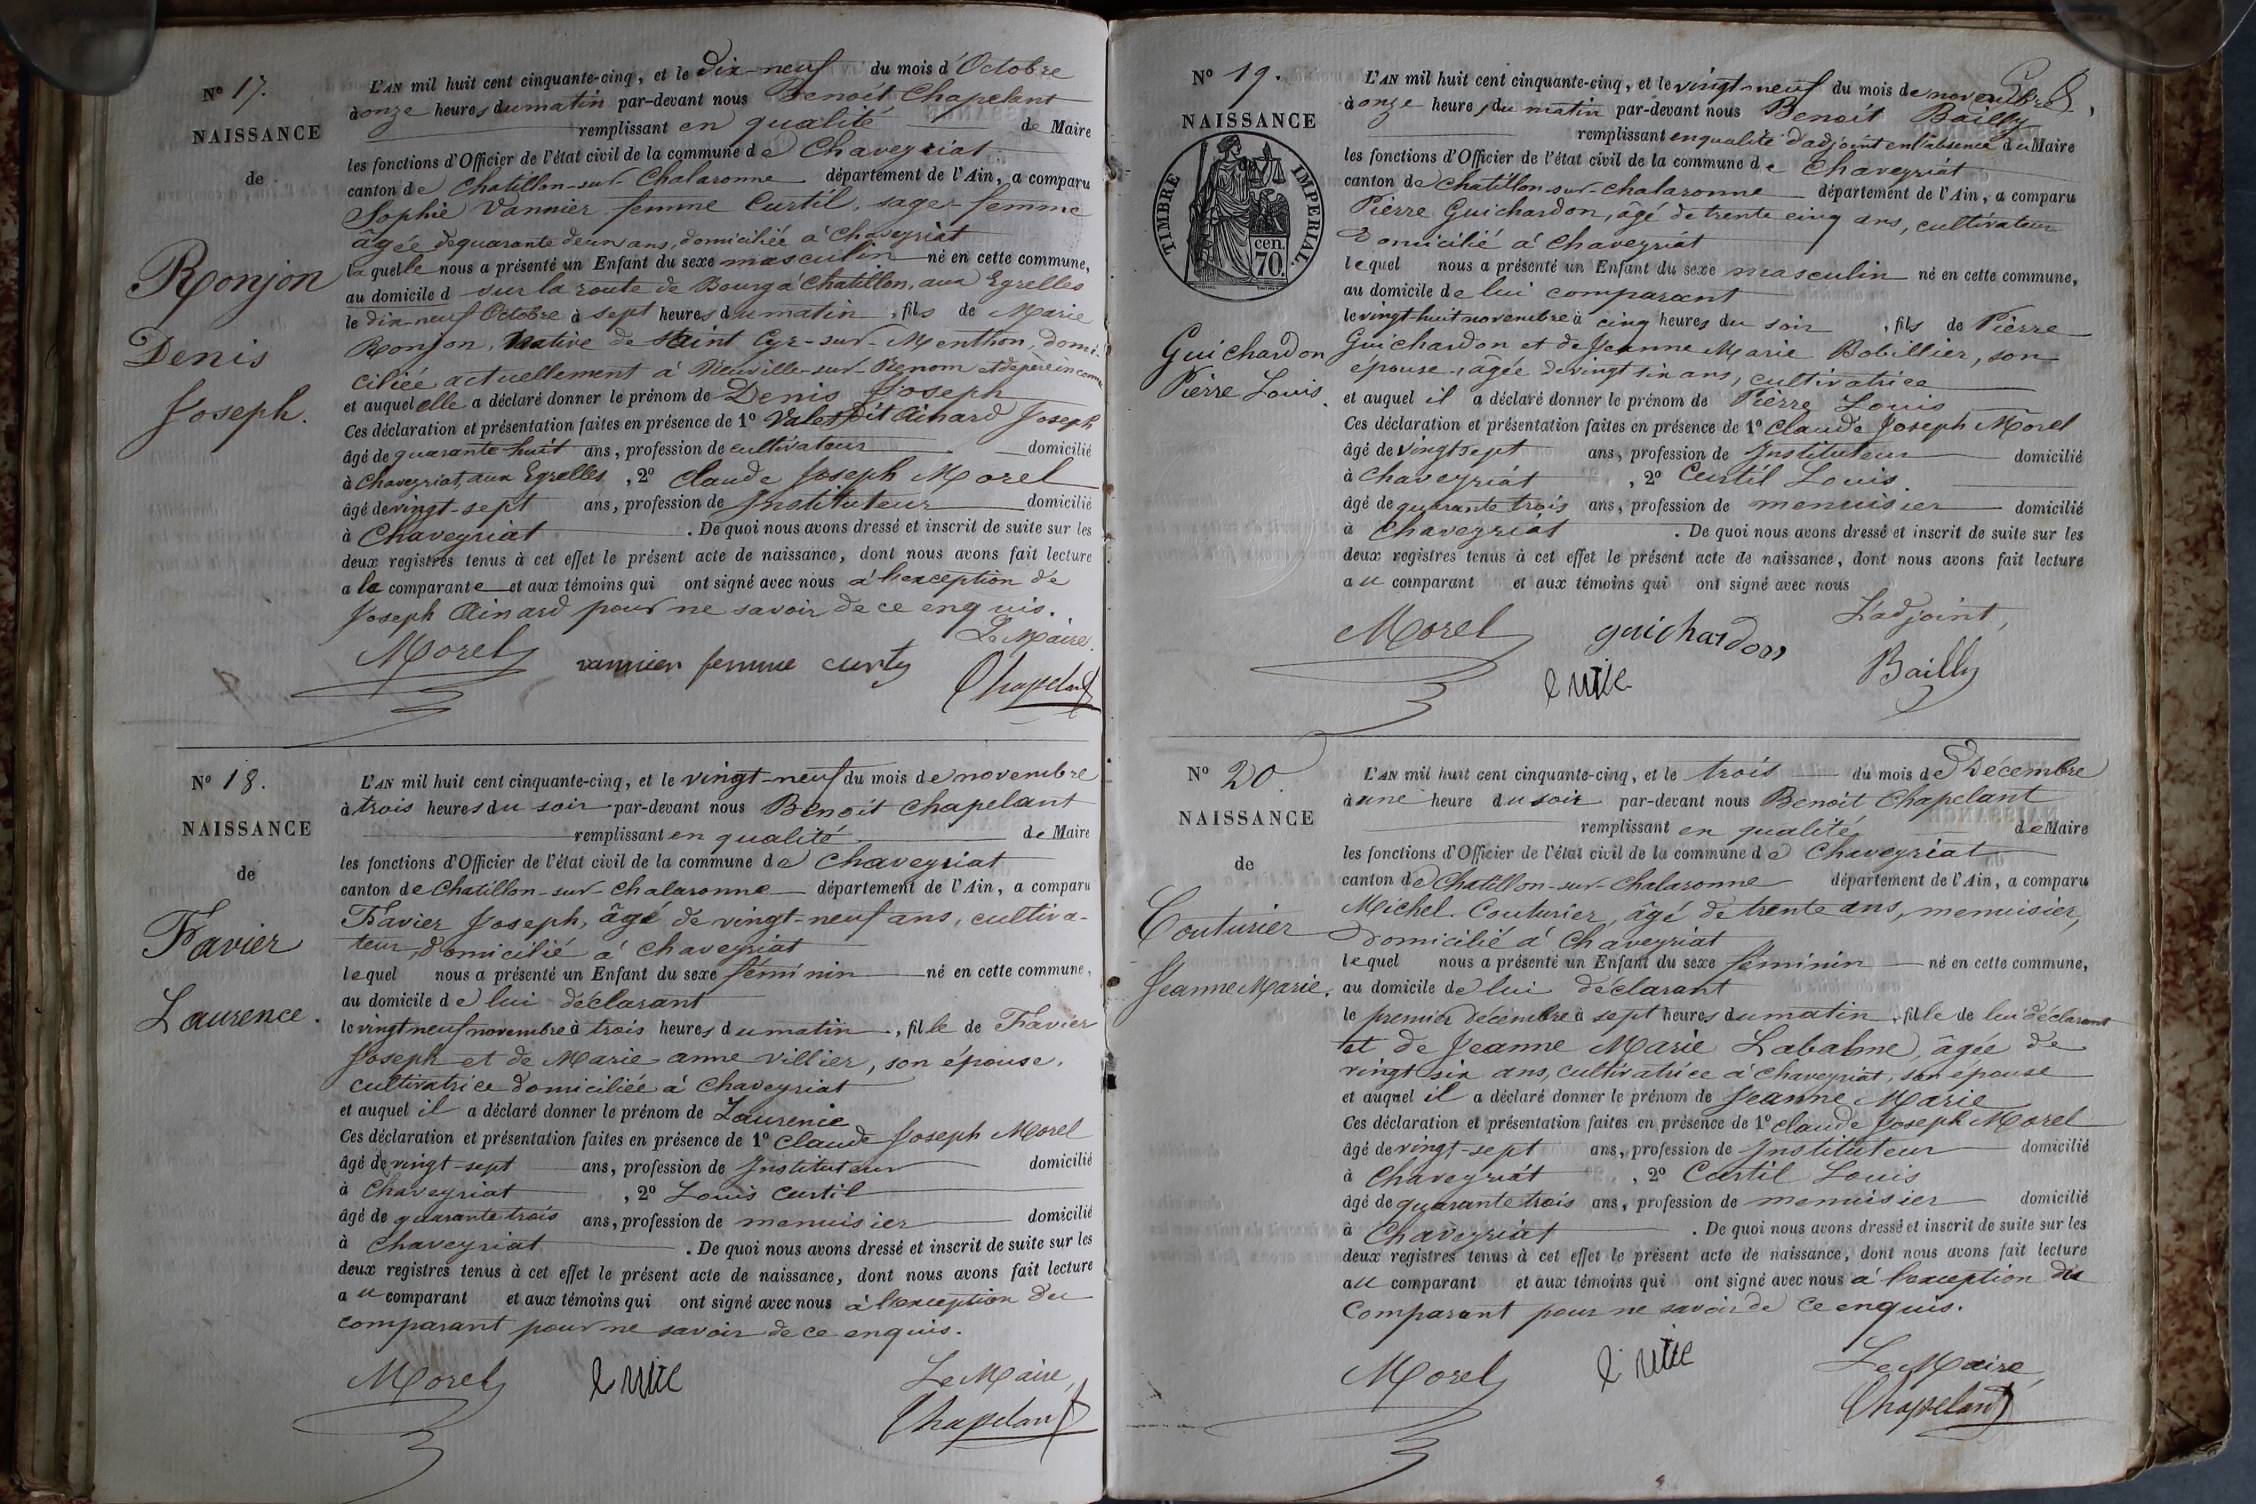 N° 17.
NAISSANCE
de
Ronjon
Denis
Joseph.
L'AN mil huit cent cinquante-cinq, et le dix-neuf du mois d'Octobre
à onze heures du matin par-devant nous Benoît Chapelant
remplissant en qualité de Maire
les fonctions d'Officier de l'état civil de la commune de Chaveyriat
canton de Chatillon-sur-Chalaronne département de l'Ain, a comparu
Sophie Vannier femme Curtil, sage-femme
âgée de quarante deux ans, domiciliée à Chaveyriat
laquelle nous a présenté un Enfant du sexe masculin né en cette commune,
au domicile d sur la route de Bourg à Chatillon, aux Egrelles
le dix-neuf Octobre à sept heures du matin, fils de Marie
Ronjon, native de Saint Cyr-sur-Menthon, domi-
ciliée actuellement à Neuville-sur-Renom et de père inconnu
et auquel elle a déclaré donner le prénom de Denis Joseph
Ces déclaration et présentation faites en présence de 1° Valet dit Ainard Joseph
âgé de quarante-huit ans, profession de cultivateur domicilié
à Chaveyriat, aux Egrelles, 2° Claude Joseph Morel
âgé de vingt-sept ans, profession de Instituteur domicilié
à Chaveyriat. De quoi nous avons dressé et inscrit de suite sur les
deux registres tenus à cet effet le présent acte de naissance, dont nous avons fait lecture
a la comparante et aux témoins qui ont signé avec nous à l'exception de
Joseph Ainard pour ne savoir de ce enquis.
Le Maire.
Morel vannier femme curty Chapelant
N° 18.
NAISSANCE
de
Favier
Laurence.
L'AN mil huit cent cinquante-cinq, et le vingt-neuf du mois de novembre
à trois heures du soir par-devant nous Benoît Chapelant
remplissant en qualité de Maire
les fonctions d'Officier de l'état civil de la commune de Chaveyriat
canton de Chatillon-sur-Chalaronne département de l'Ain, a comparu
Favier Joseph, âgé de vingt-neuf ans, cultiva-
teur, domicilié à Chaveyriat
lequel nous a présenté un Enfant du sexe féminin né en cette commune,
au domicile de lui déclarant
le vingt neuf novembre à trois heures du matin, fille de Favier
Joseph et de Marie-anne Villier, son épouse,
cultivatrice domiciliée à Chaveyriat
et auquel il a déclaré donner le prénom de Laurence
Ces déclaration et présentation faites en présence de 1° Claude Joseph Morel
âgé de vingt-sept ans, profession de Instituteur domicilié
à Chaveyriat, 2° Louis Curtil
âgé de quarante trois ans, profession de menuisier domicilié
à Chaveyriat. De quoi nous avons dressé et inscrit de suite sur les
deux registres tenus à cet effet le présent acte de naissance, dont nous avons fait lecture
au comparant et aux témoins qui ont signé avec nous à l'exception du
comparant pour ne savoir de ce enquis.
Le Maire,
Morel Chapelant
N° 19.
NAISSANCE
TIMBRE IMPERIAL.
cen.
70.
Guichardon
Pierre Louis.
L'AN mil huit cent cinquante-cinq, et le vingt-neuf du mois de novembre
à onze heures du matin par-devant nous Benoît Bailly
remplissant en qualité d'adjoint en l'absence du Maire
les fonctions d'Officier de l'état civil de la commune de Chaveyriat
canton de Chatillon-sur-Chalaronne département de l'Ain, a comparu
Pierre Guichardon, âgé de trente cinq ans, cultivateur
Domicilié à Chaveyriat
lequel nous a présenté un Enfant du sexe masculin né en cette commune,
au domicile de lui comparant
le vingt-huit novembre à cinq heures du soir, fils de Pierre
Guichardon et de Jeanne Marie Bobillier, son
épouse, âgée de vingt six ans, cultivatrice
et auquel il a déclaré donner le prénom de Pierre Louis
Ces déclaration et présentation faites en présence de 1° Claude Joseph Morel
âgé de vingt sept ans, profession de Instituteur domicilié
à Chaveyriat, 2° Curtil Louis.
âgé de quarante trois ans, profession de menuisier domicilié
à Chaveyriat. De quoi nous avons dressé et inscrit de suite sur les
deux registres tenus à cet effet le présent acte de naissance, dont nous avons fait lecture
au comparant et aux témoins qui ont signé avec nous
L'adjoint,
Morel guichardon Bailly
N° 20.
NAISSANCE
de
Couturier
Jeanne Marie.
L'AN mil huit cent cinquante-cinq, et le trois du mois de Décembre
à une heure du soir par-devant nous Benoît Chapelant
remplissant en qualité de Maire
les fonctions d'Officier de l'état civil de la commune de Chaveyriat
canton de Chatillon-sur-Chalaronne département de l'Ain, a comparu
Michel Couturier, âgé de trente ans, menuisier,
Domicilié à Chaveyriat
lequel nous a présenté un Enfant du sexe féminin né en cette commune,
au domicile de lui déclarant
le premier décembre à sept heures du matin, fille de lui déclarant
et de Jeanne Marie Labalme, âgée de
vingt six ans, cultivatrice à Chaveyriat, son épouse
et auquel il a déclaré donner le prénom de Jeanne Marie
Ces déclaration et présentation faites en présence de 1° Claude Joseph Morel
âgé de vingt-sept ans, profession de Instituteur domicilié
à Chaveyriat, 2° Curtil Louis
âgé de quarante trois ans, profession de menuisier domicilié
à Chaveyriat. De quoi nous avons dressé et inscrit de suite sur les
deux registres tenus à cet effet le présent acte de naissance, dont nous avons fait lecture
au comparant et aux témoins qui ont signé avec nous à l'exception du
Comparant pour ne savoir de ce enquis.
Le Maire,
Morel Chapelant